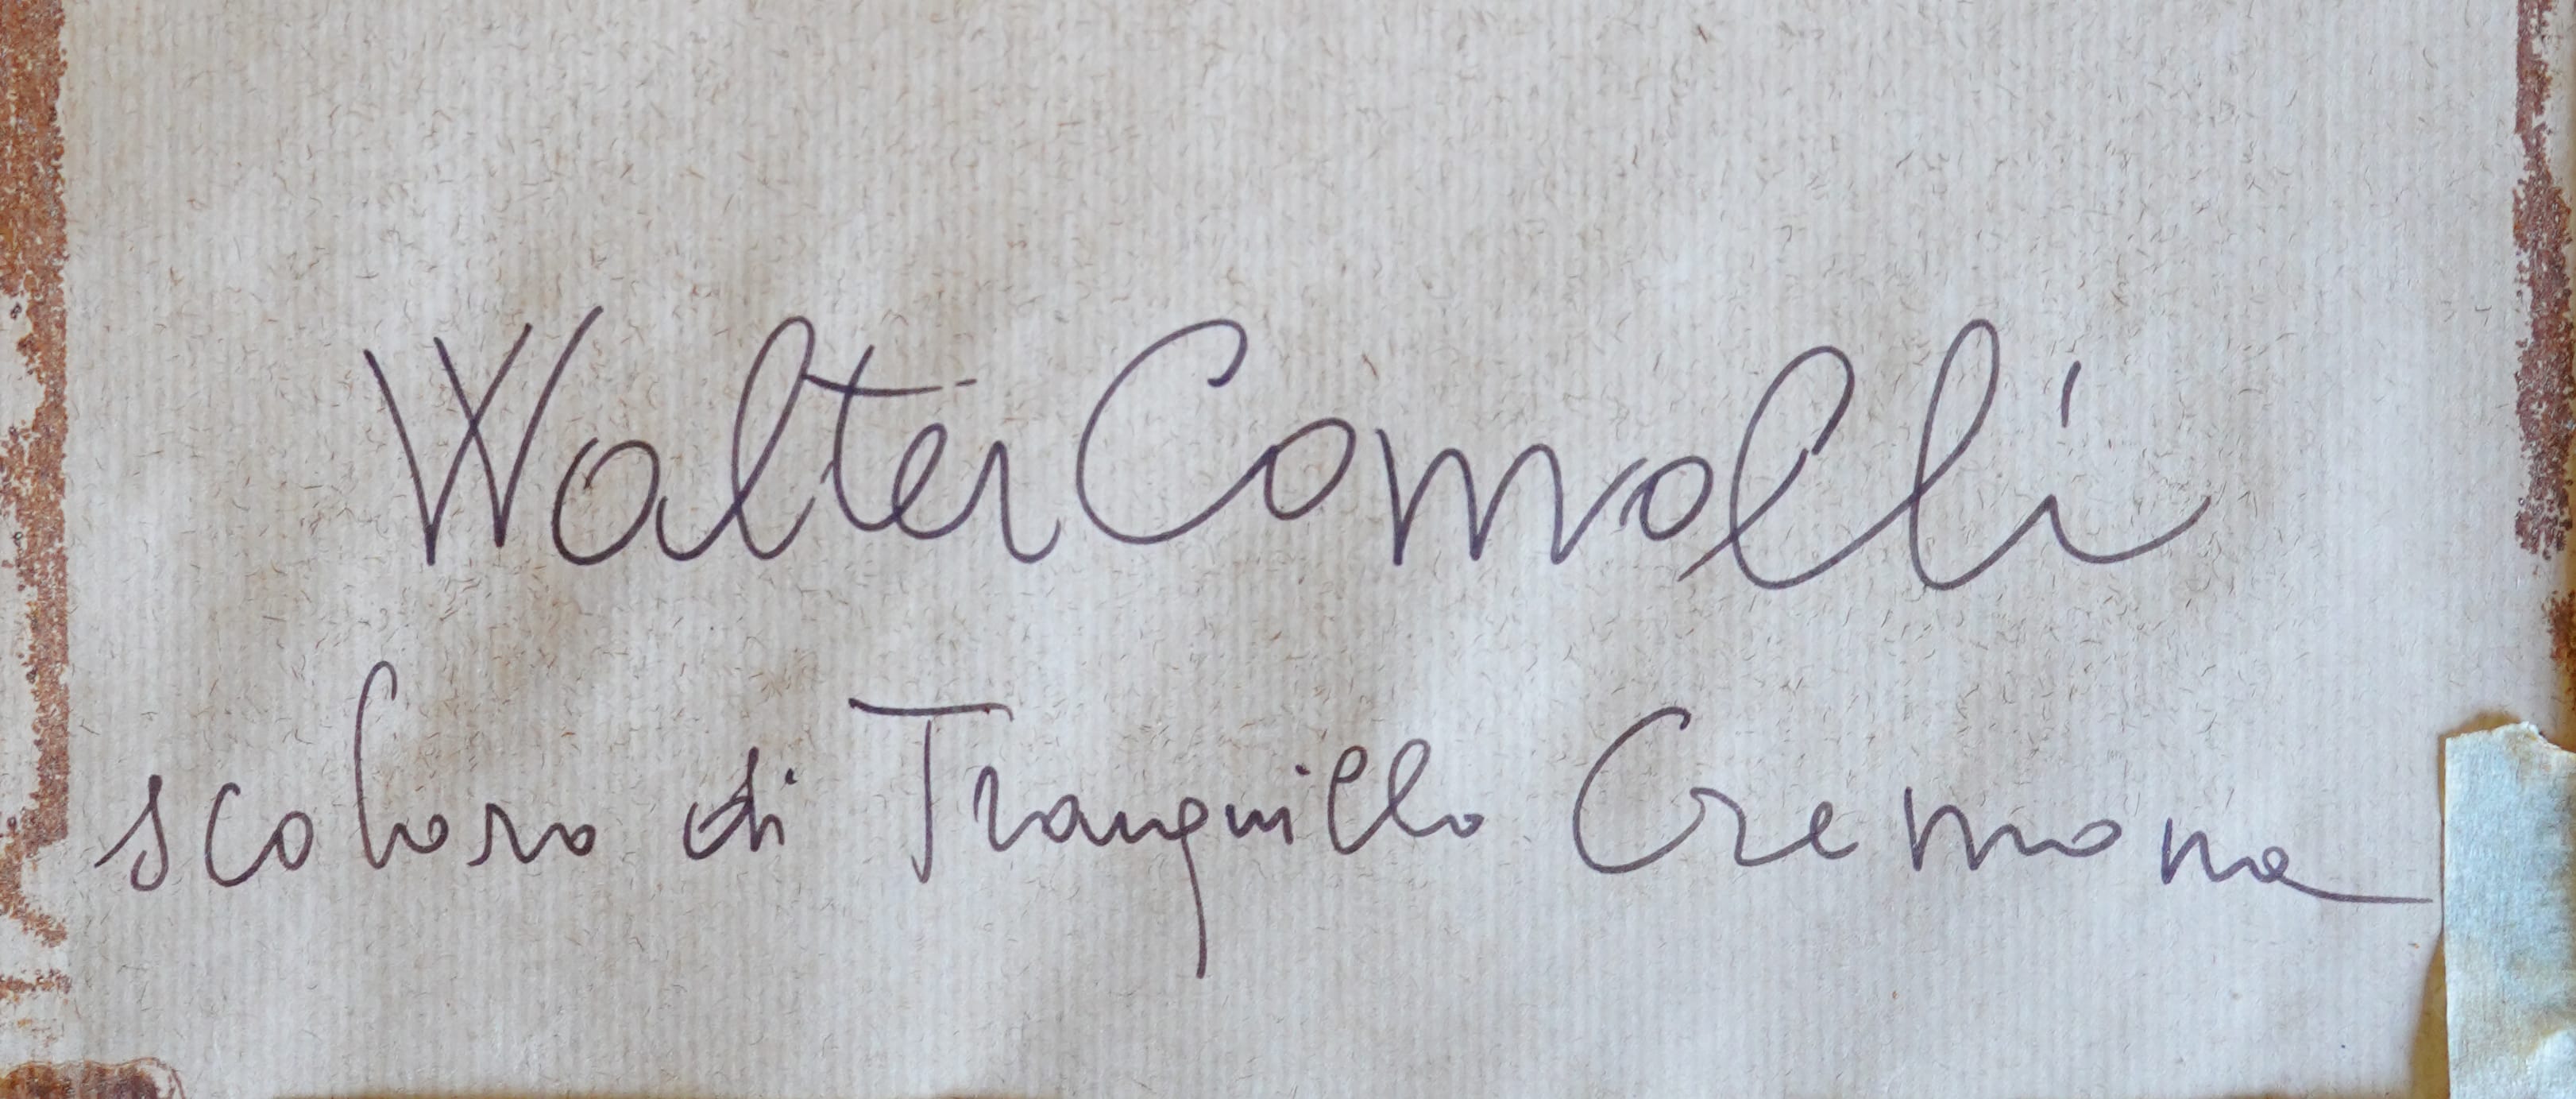 Walter Comolli
scolaro di Tranquillo Cremona